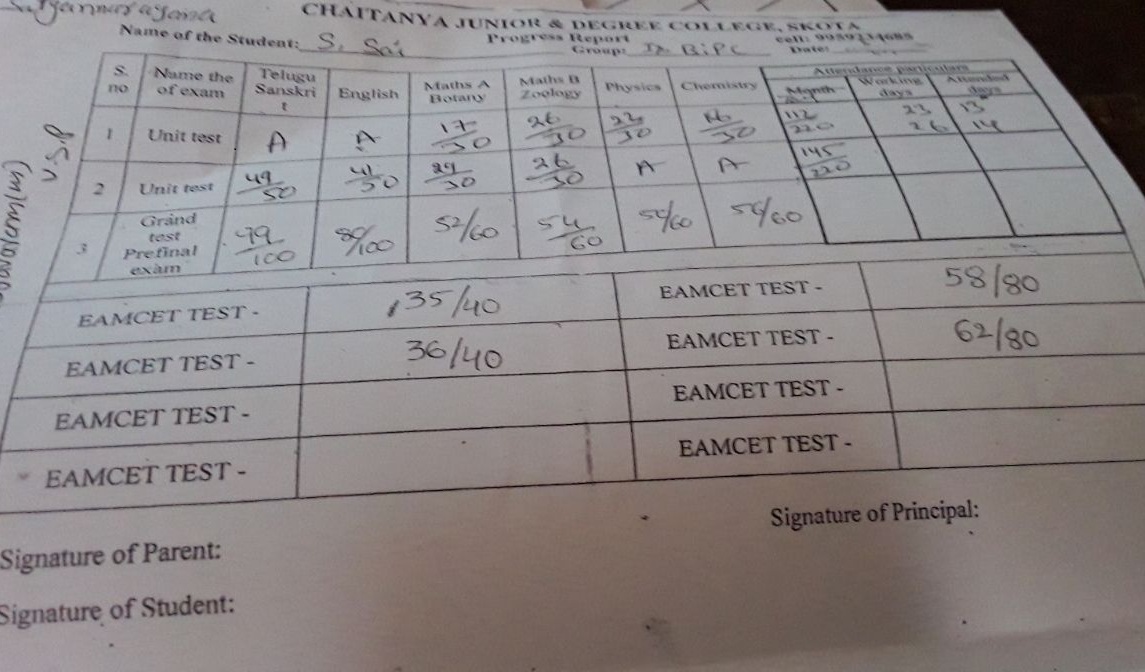 CHAITANYA JUNIOR & DEGREE COLLEGE, SKOTA
Progress Report
Name of the Student: S. Sai
Group: BiPC
Date:
S. no Name the of exam Telugu Sanskrit English Maths A Botany Maths B Zoology Physics Chemistry Attendance particulars
Month Working days Attended days
1 Unit test A A 17/30 26/30 23/30 16/30 112/220 23 13
26 14
2 Unit test 49/50 41/50 29/30 26/30 A A 145/220
3 Grand test Prefinal exam 99/100 89/100 52/60 54/60 54/60 54/60
EAMCET TEST - 35/40 EAMCET TEST - 58/80
EAMCET TEST - 36/40 EAMCET TEST - 62/80
EAMCET TEST - EAMCET TEST -
EAMCET TEST - EAMCET TEST -
Signature of Principal:
Signature of Parent:
Signature of Student: